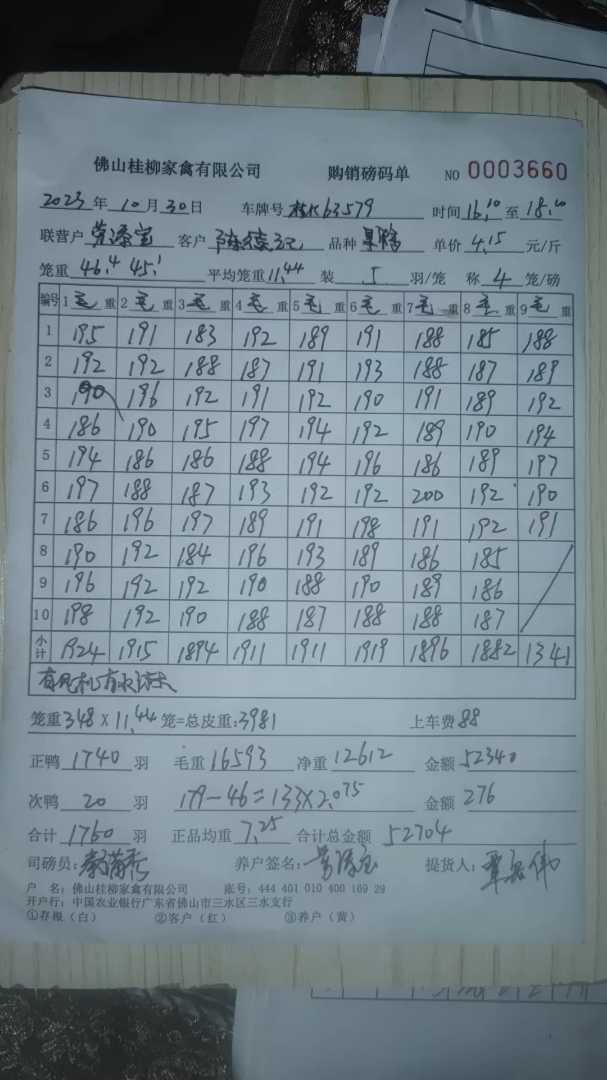 佛山桂柳家禽有限公司 购销磅码单 NO 0003660
2023年10月30日 车牌号 63579 时间16.10至18.10
联营户 客户 品种 单价4.15元/斤
笼重46.4 45.1 平均笼重11.44 装5羽/笼 称4笼/磅
编号 1毛重 2毛重 3毛重 4毛重 5毛重 6毛重 7毛重 8毛重 9毛重
1 195 191 183 192 189 191 188 185 188
2 192 192 188 187 191 193 188 187 189
3 190 196 192 191 192 190 191 189 192
4 186 190 195 197 194 192 189 190 194
5 194 186 186 188 194 196 186 189 197
6 197 188 187 193 192 192 200 192 190
7 186 196 197 189 191 198 191 192 191
8 190 192 184 196 193 189 186 185
9 196 192 192 190 188 190 189 186
10 198 192 190 188 187 188 188 187
小计 1924 1915 1894 1911 1911 1919 1896 1882 1341
有风机有水
笼重348X11.44笼=总皮重:3981 上车费88
正鸭1740羽 毛重16593 净重12612 金额52340
次鸭20羽 179-46=133X2.075 金额276
合计1760羽 正品均重7.25 合计总金额52704
司磅员: 养户签名: 提货人:
户 名:佛山桂柳家禽有限公司 账号:444 401 010 400 169 29
开户行:中国农业银行广东省佛山市三水区三水支行
①存根(白) ②客户(红) ③养户(黄)